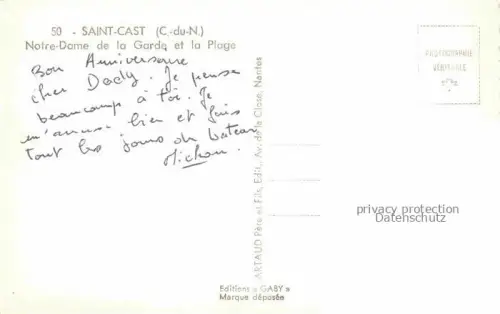 50 - SAINT-CAST (C.-du-N.)
Notre-Dame de la Garde et la Plage
Bon Anniversaire
cher Dady. Je pense
beaucoup à toi. Je
m'amuse bien et fais
tout les jours du bateau
Michou.
ARTAUD Père et Fils, Edit., Av. de la Close, Nantes
PHOTOGRAPHIE
VERITABLE
privacy protection
Datenschutz
Editions « GABY »
Marque déposée